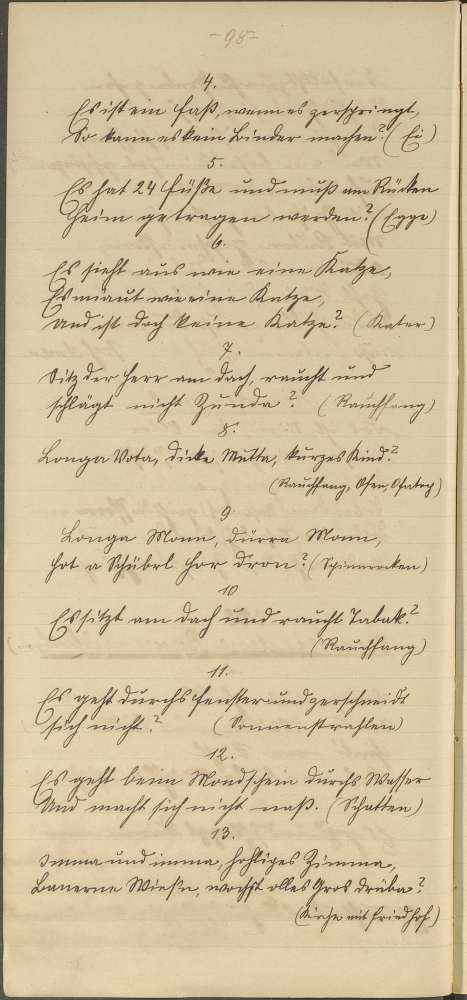 -98-
4.
Es ist ein Faß, wenn es zerspringt,
So kann es kein Binder machen? (Ei)
5.
Es hat 24 Füße und muß am Rücken
Heim getragen werden? (Egge)
6.
Es sieht aus wie eine Katze,
Es miaut wie eine Katze,
und ist doch keine Katze? (Kater)
7.
Sitz der Herr am Dach, raucht und
schlägt nicht Zunda? (Rauchfang)
8.
Longa Vota, dicke Mutta, kurzes Kind?
(Rauchfang, Ofen, Ofatoch)
9
Longa Monn, dürra Monn,
hot a Schübrl Hor dron? (Spinnrocken)
10
Es sitzt am Dach und raucht Tabak?
(Rauchfang)
11.
Es geht durchs Fenster und zerschneidt
sich nicht? (Sonnenstrahlen)
12.
Es geht beim Mondschein durchs Wasser
Und macht sich nicht naß. (Schatten)
13.
Imma und imma, Zimma,
Wiesn, wochst olles Gros drüba?
(Kirche mit Friedhof)